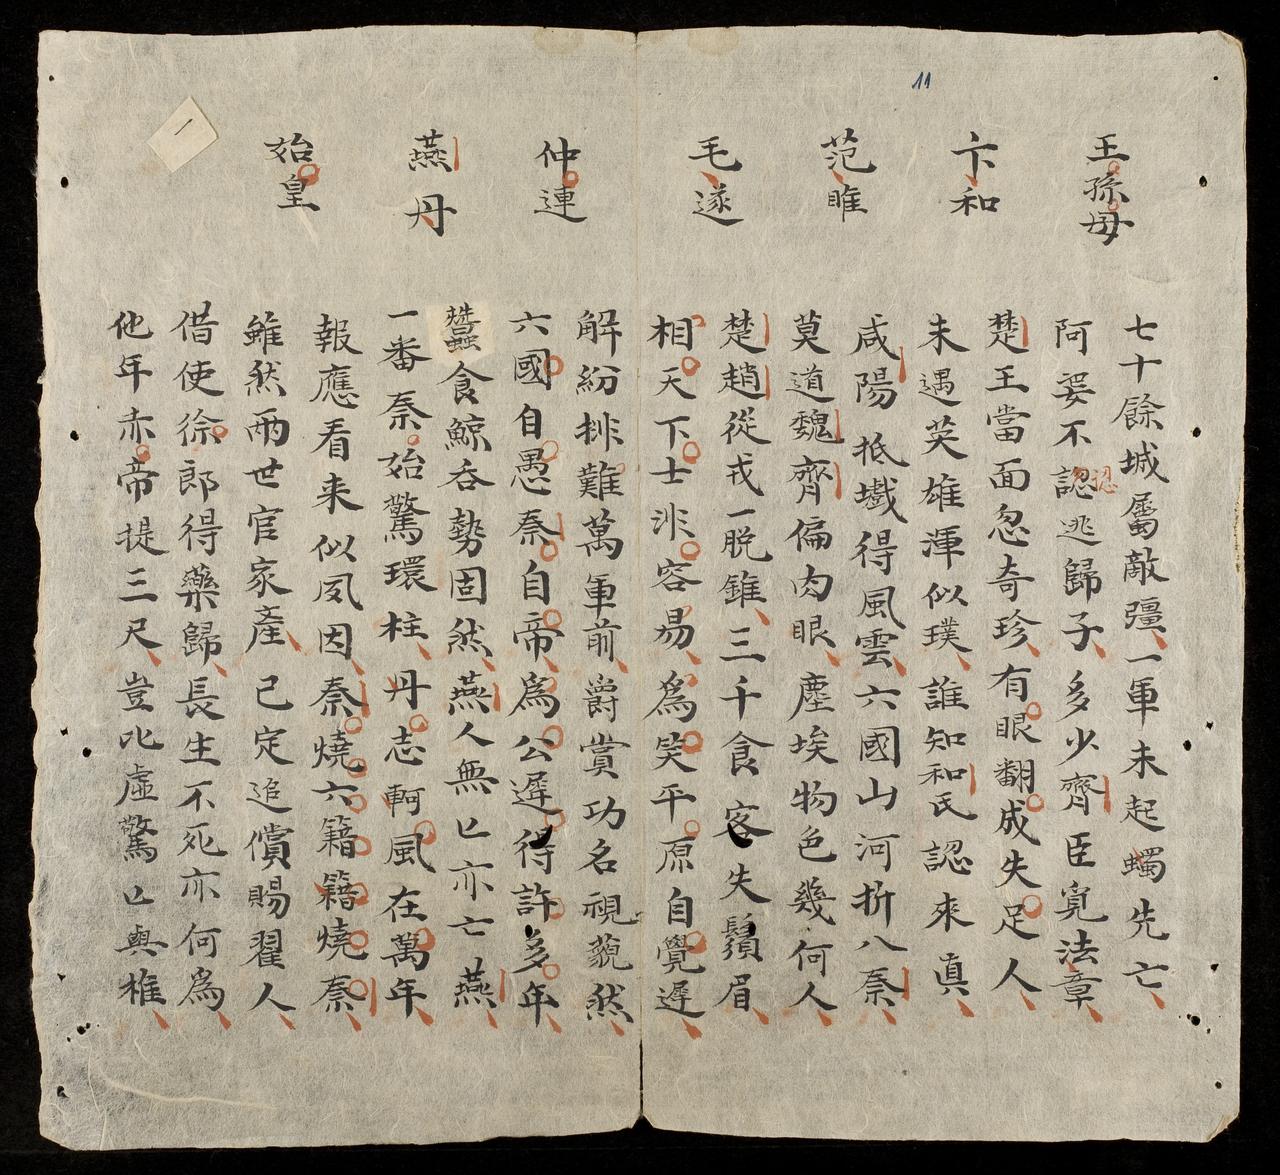 11
王孫母
七十餘城屬敵彊一軍未起蠋先亡
阿婆不認逃歸子多少齊臣寛法章
認
卞和
楚王當面忽奇珍有眼翻成失足人
未遇英雄渾似璞誰知和氏認來眞
范雎
咸陽抵巇得風雲六國山河折八秦
莫道魏齊偏肉眼塵埃物色幾何人
毛遂
楚趙從戎一脱錐三千食客失鬚眉
相天下士泚容易爲笑平原自覺遲
仲連
解紛排難萬軍前爵賞功名視藐然
六國自愚秦自帝爲公遲得許多年
燕丹
蠶食鯨呑勢固然燕人無亡亦亡燕
一番秦始驚環柱丹志軻風在萬年
始皇
報應看来似夙因秦燒六籍籍燒秦
雖然兩世官家產已定追償賜翟人
借使徐郎得藥歸長生不死亦何爲
他年赤帝提三尺豈比虛驚亡與椎
一